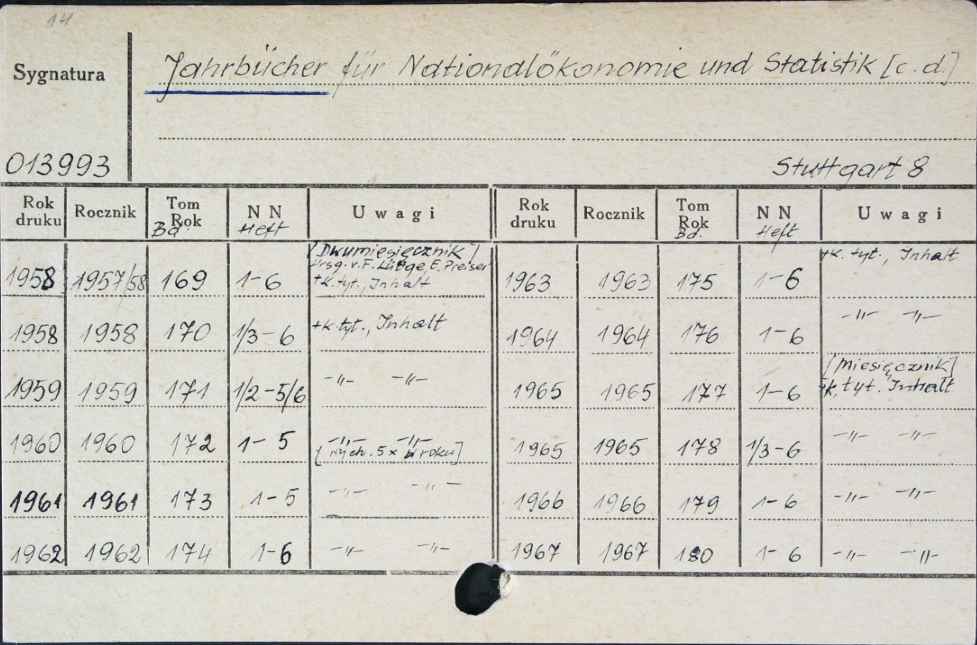 14
Sygnatura
Jahrbücher für Nationalökonomie und Statistik [c.d.]
013993
Stuttgart 8
Rok druku Rocznik Tom Rok Bd. N N Heft Uwagi Rok druku Rocznik Tom Rok Bd. N N Heft Uwagi
1958 1957/58 169 1-6 [Dwumiesięcznik] Hrsg. v. F. Lütge E. Preiser +k. tyt., Inhalt 1963 1963 175 1-6 +k. tyt., Inhalt
1958 1958 170 1/3-6 +k tyt., Inhalt 1964 1964 176 1-6 -"- -"-
1959 1959 171 1/2-5/6 -"- -"- 1965 1965 177 1-6 [Miesięcznik] +k. tyt. Inhalt
1960 1960 172 1-5 -"- -"- [wych. 5x w roku] 1965 1965 178 1/3-6 -"- -"-
1961 1961 173 1-5 -"- -"- 1966 1966 179 1-6 -"- -"-
1962 1962 174 1-6 -"- -"- 1967 1967 180 1-6 -"- -"-